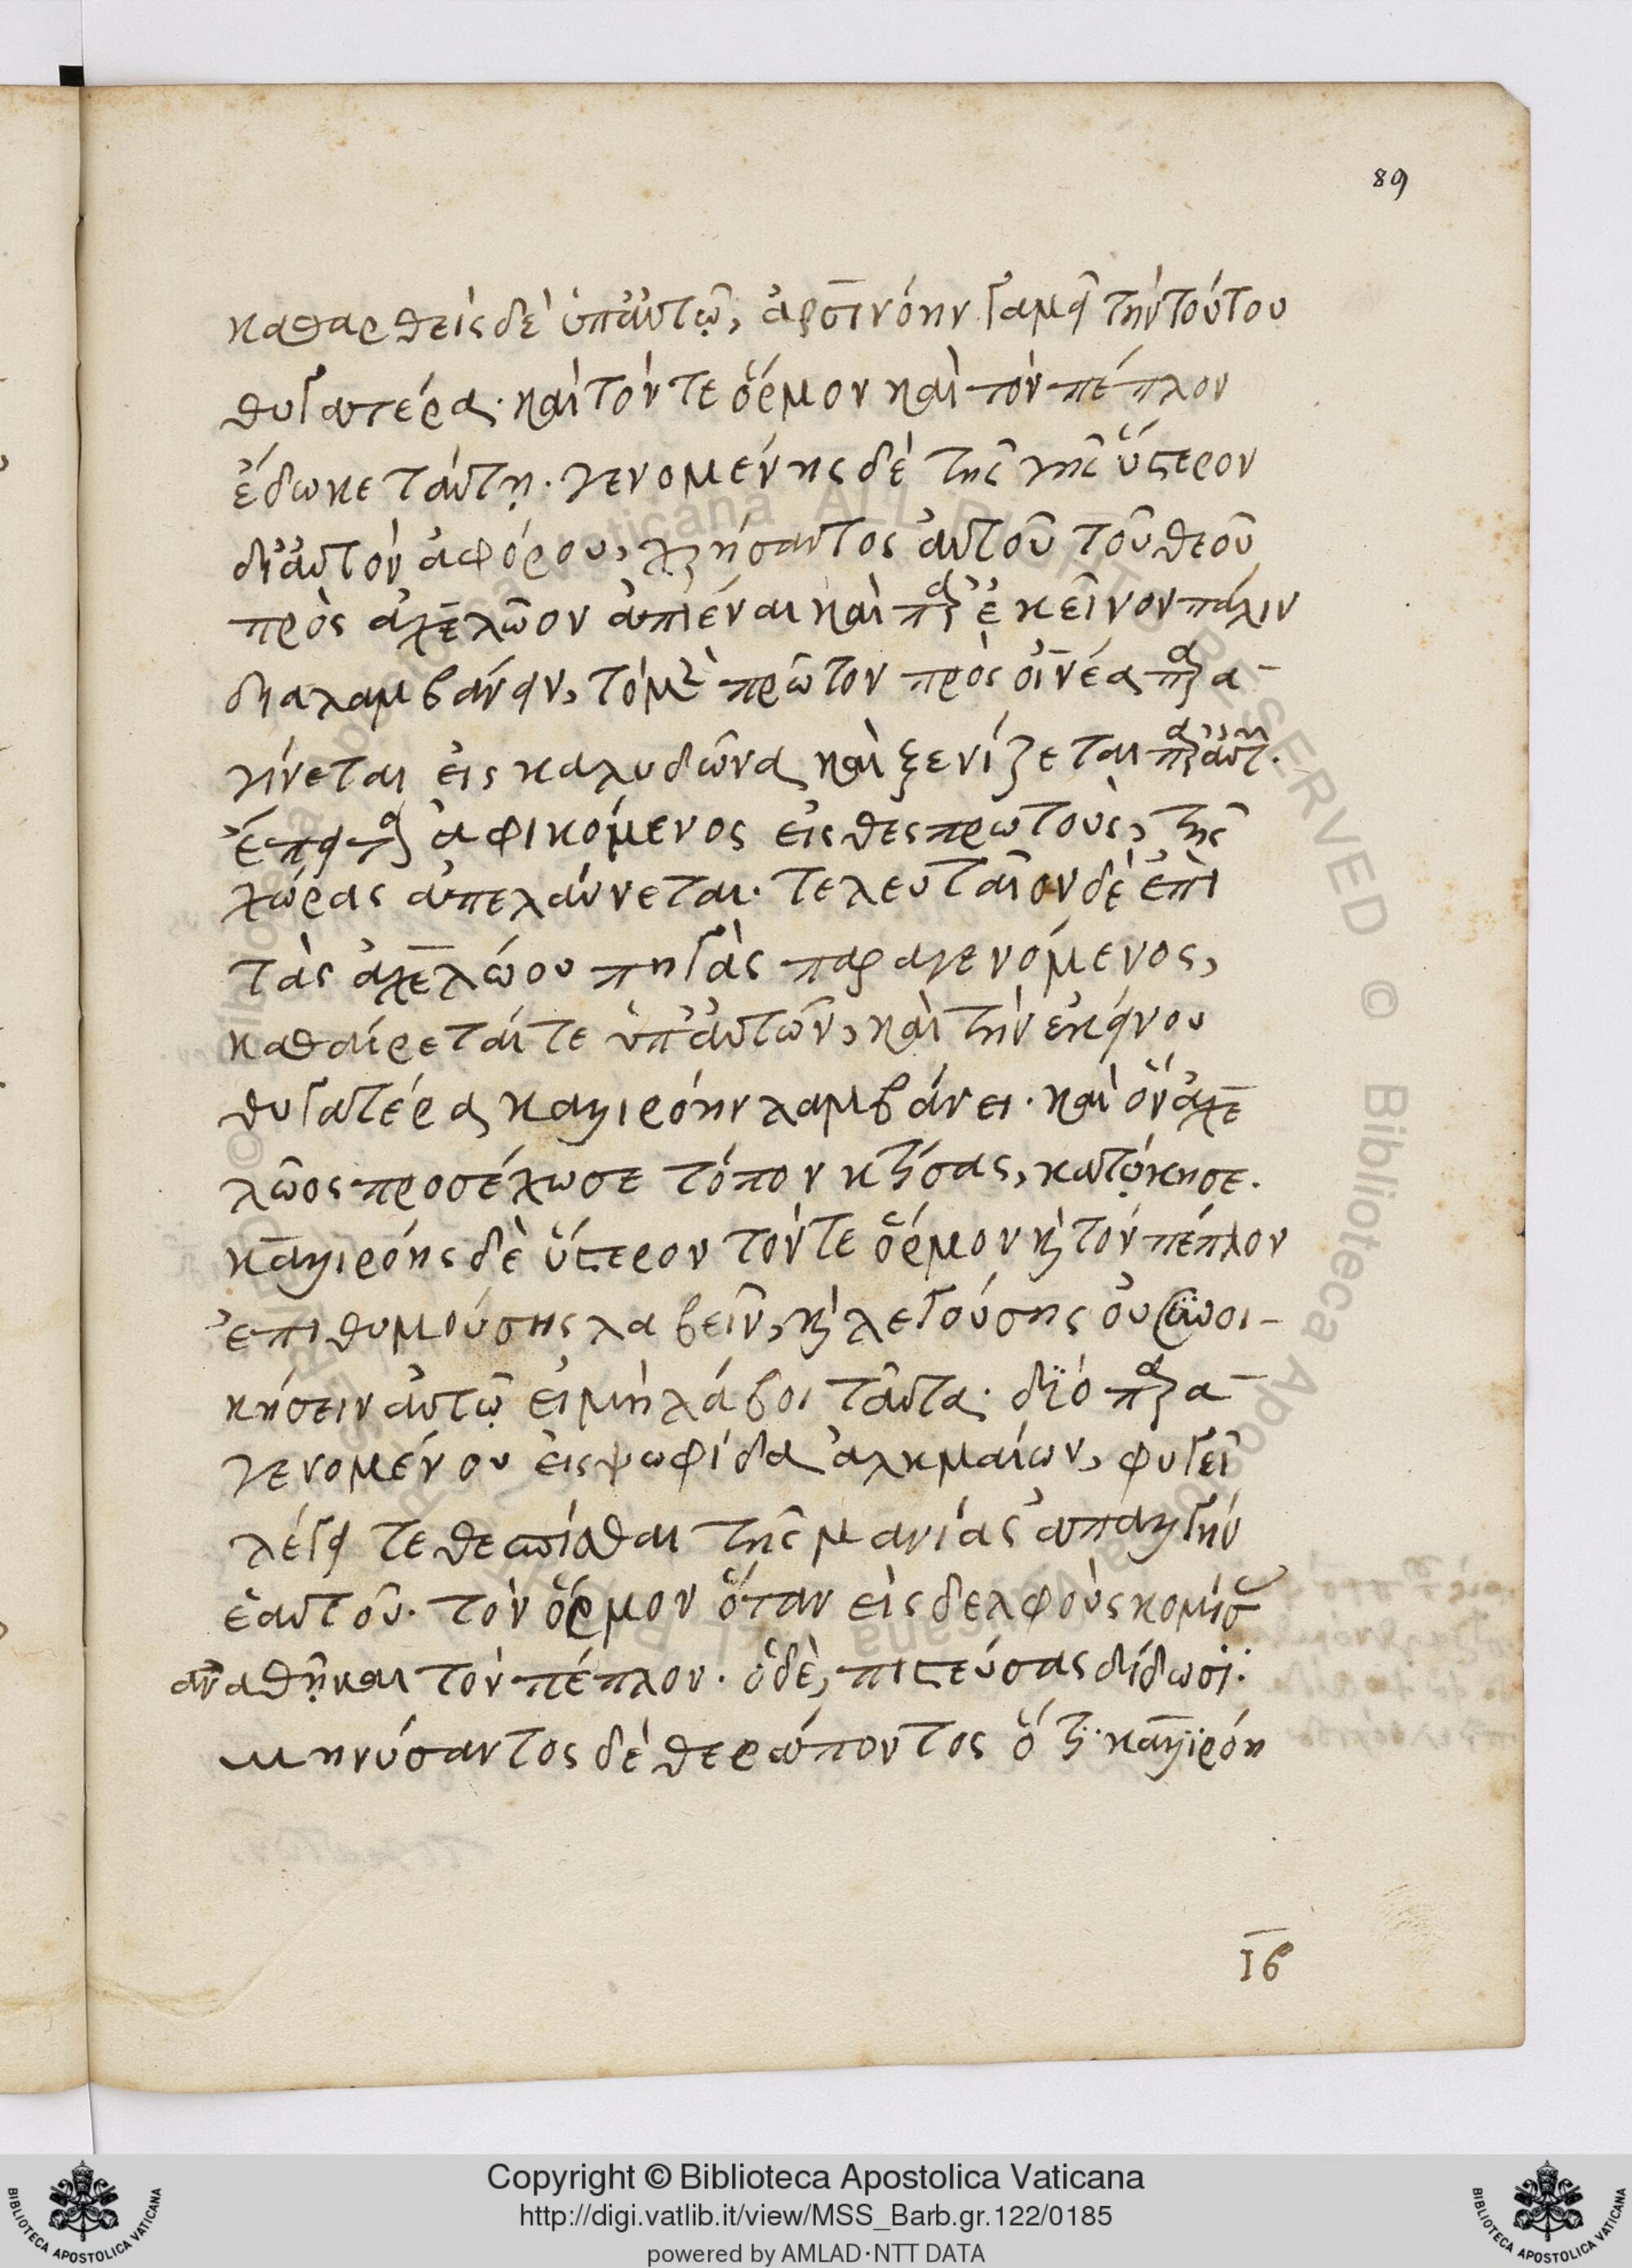 89
καθαρθεὶς δὲ ὑπ' αὐτῷ, ἀρσινόην γαμεῖ τὴν τούτου
θυγατέρα· καὶ τόν τε ὅρμον καὶ τὸν πέπλον
ἔδωκε ταύτῃ. γενομένης δὲ τῆς γῆς ὕστερον
δι' αὐτὸν ἀφόρου, χρήσαντος αὐτοῦ τοῦ θεοῦ
πρὸς ἀχελῶον ἀπιέναι καὶ παρ' ἐκεῖνον πάλιν
διαλαμβάνειν, τὸ μὲν πρῶτον πρὸς οἰνέα παρα-
γίνεται εἰς καλυδῶνα καὶ ξενίζεται παρ' αὐτῶ.
ἔπειτα ἀφικόμενος εἰς θεσπρωτοὺς, τῆς
χώρας ἀπελαύνεται. τελευταῖον δὲ ἐπὶ
τὰς ἀχελώου πηγὰς παραγενόμενος,
καθαίρεταί τε ὑπ' αὐτῶν, καὶ τὴν ἐκείνου
θυγατέρα καλιρόην λαμβάνει. καὶ ὃν ἀχε
λῶος προσέχωσε τόπον κτίσας, κατῴκησε.
καλιρόης δὲ ὕστερον τόν τε ὅρμον καὶ τὸν πέπλον
ἐπιθυμούσης λαβεῖν, καὶ λεγούσης οὐ συνοι-
κήσειν αὐτῷ εἰ μὴ λάβοι ταῦτα. διὸ παρα-
γενομένου εἰς ψωφίδα ἀλκμαίων, φυγεῖ
λέγει τεθεσπίσθαι τῆς μανίας ἀπαλλγὴν
ἑαυτοῦ. τὸν ὅρμον ὅταν εἰς δελφοὺς κομίσας
ἀναθῆναι τὸν πέπλον. ὁ δὲ, πιστεύσας δίδωσι.
μηνύσαντος δὲ θεράποντος ὅτι καλιρόη
ιβ
Copyright © Biblioteca Apostolica Vaticana
http://digi.vatlib.it/view/MSS_Barb.gr.122/0185
powered by AMLAD·NTT DATA